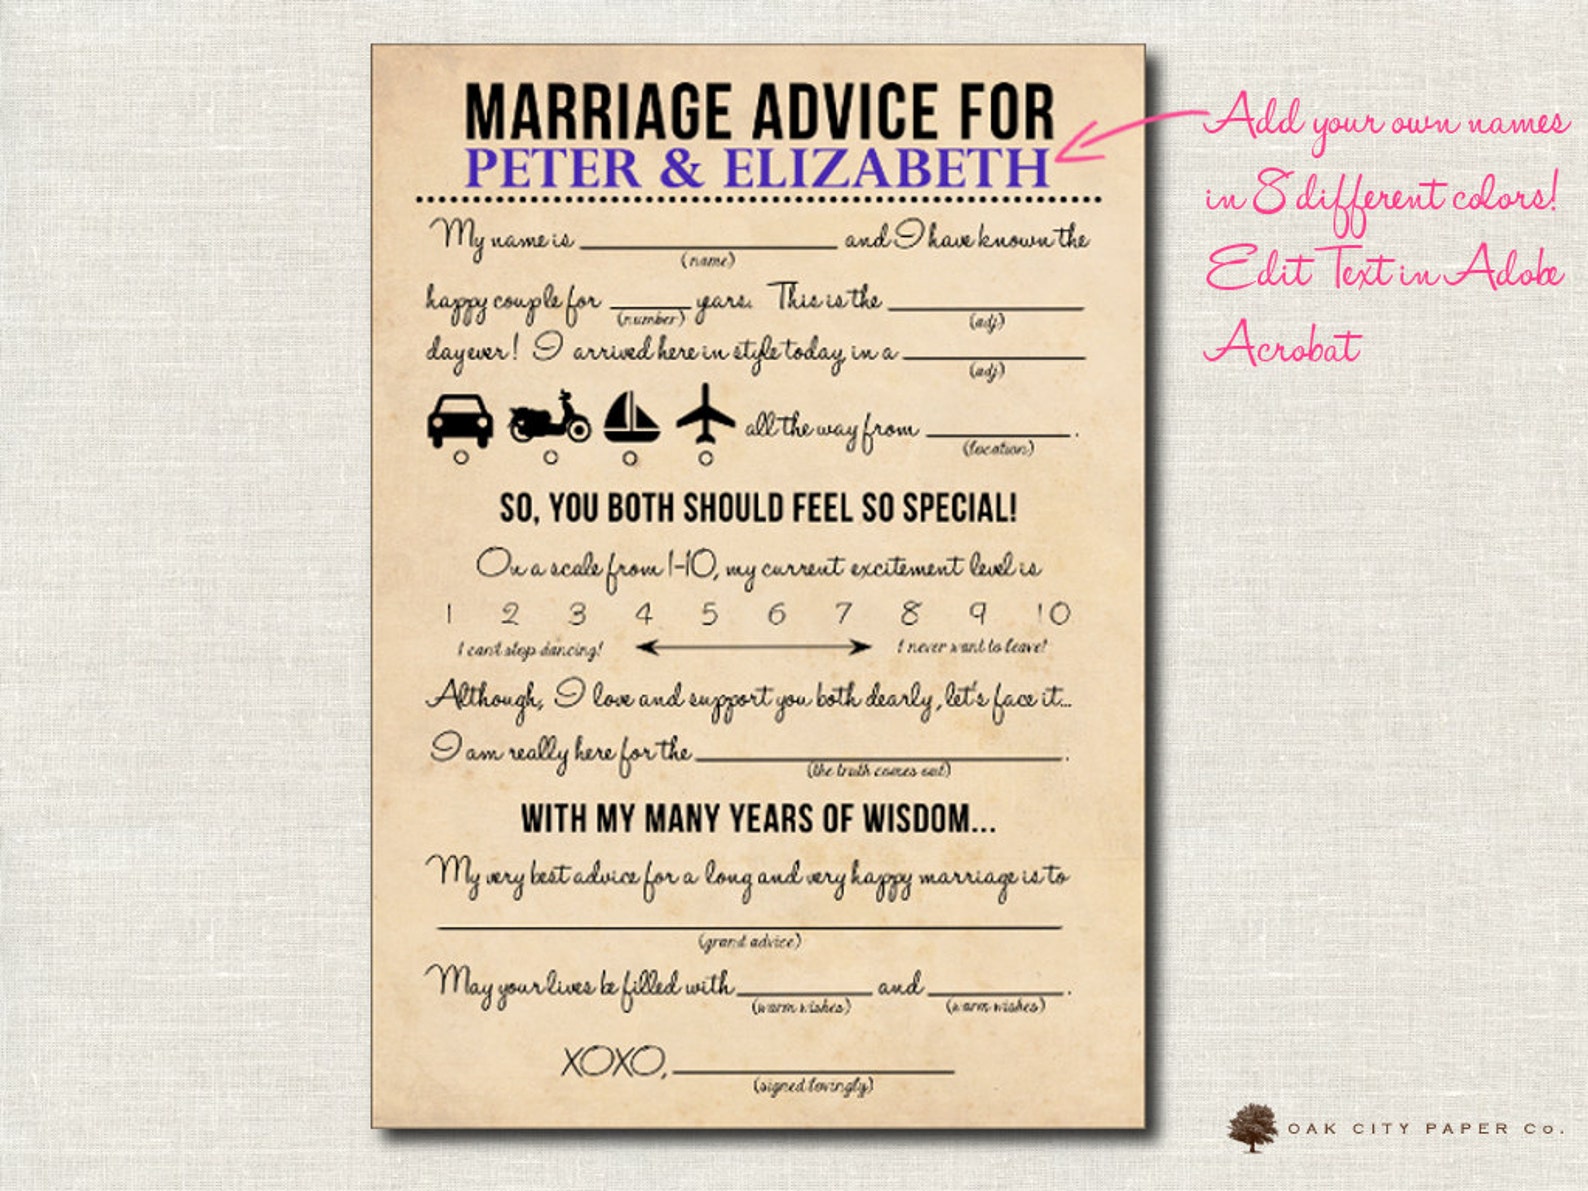 MARRIAGE ADVICE FOR
PETER & ELIZABETH
My name is ____ and I have known the
(name)
happy couple for ____ years. This is the ____
(number) (adj)
day ever! I arrived here in style today, in a ____
(adj)
all the way from ____.
(location)
SO, YOU BOTH SHOULD FEEL SO SPECIAL!
On a scale from 1-10, my current excitement level is
1 2 3 4 5 6 7 8 9 10
I can't stop dancing! I never want to leave!
Although, I love and support you both dearly, let's face it...
I am really here for the ____.
(the truth comes out)
WITH MY MANY YEARS OF WISDOM...
My very best advice for a long and very happy marriage is to
____
(grand advice)
May your lives be filled with ____ and ____.
(warm wishes) (warm wishes)
XOXO, ____
(signed lovingly)
Add your own names
in 8 different colors!
Edit Text in Adobe
Acrobat
OAK CITY PAPER Co.